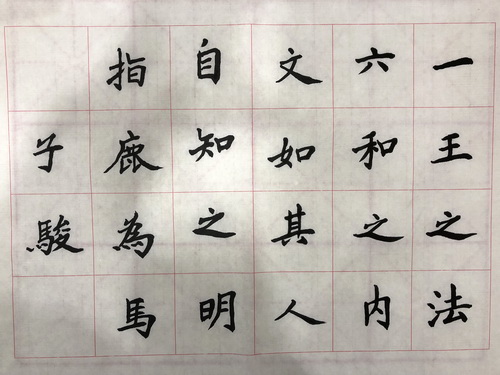 一王之法
六和之内
文如其人
自知之明
指鹿為馬
子駿